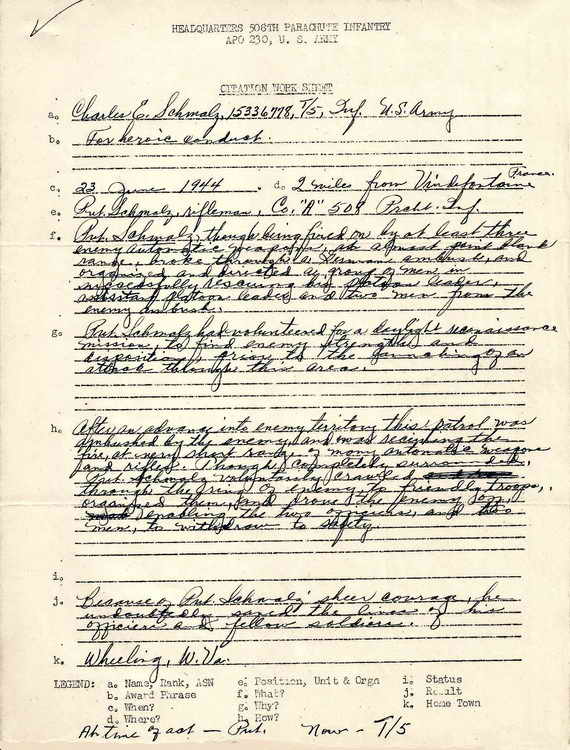 HEADQUARTERS 506TH PARACHUTE INFANTRY
APO 230, U. S. ARMY
CITATION WORK SHEET
a. Charles E. Schmalz, 15336778, T/5, Inf. U.S. Army
b. For heroic conduct.
c. 23 June 1944. d. 2 miles from Vindefontaine France.
e. Pvt. Schmalz, rifleman, Co. "A" 508 Praht. Inf.
f. Pvt. Schmalz, though being fired on by at least three
enemy automatic weapons, at almost point blank
range, broke through a German ambush, and
organized and directed a group of men in
successfully rescuing his platoon leader,
assistant platoon leader and two men from the
enemy ambush.
g. Pvt. Schmalz had volunteered for a daylight reconaissance
mission, to find enemy strength and
dispositions prior to the launching of an
attack through this area.
h. After an advance into enemy territory this patrol was
ambushed by the enemy, and was receiving the
fire, at very short range of many automatic weapons
and rifles. Though completely
Pvt. Schmalz voluntarily crawled
through the ring of enemy to friendly troops,
organized them, and drove the enemy
enabling the two officers, and two
men, to withdraw to safety.
i.
j. Because of Pvt. Schmalz' sheer courage, he
undoubtedly saved the lives of his
officers and fellow soldiers.
k. Wheeling, W. Va.
LEGEND: a. Name, Rank, ASN e. Position, Unit & Orgn i. Status
b. Award Phrase f. What? j. Result
c. When? g. Why? k. Home Town
d. Where? h. How?
At time of act - Pvt. Now - T/5